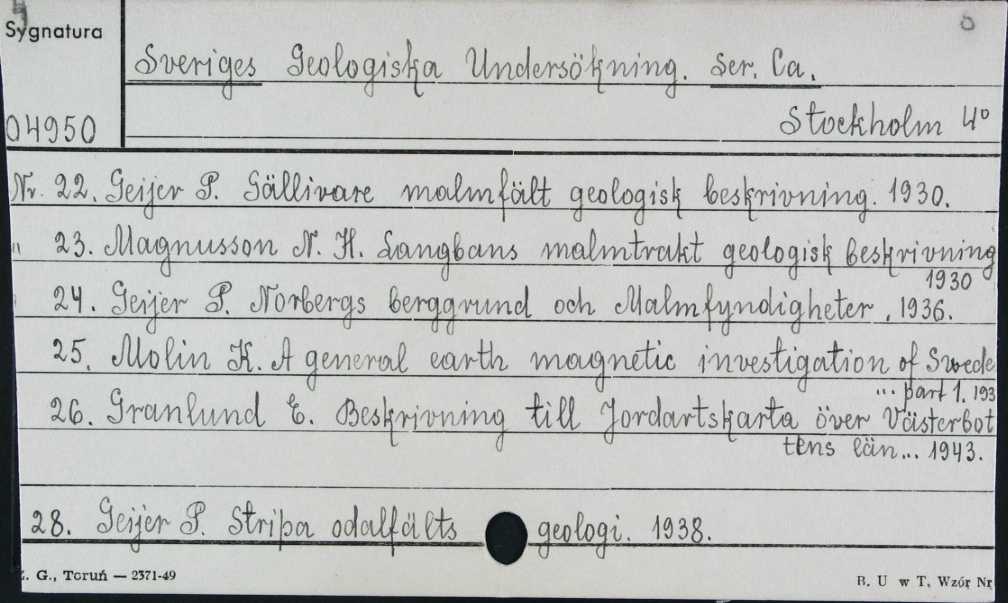 Sygnatura
Sveriges Geologiska Undersökning. Ser. Ca.
04950
Stockholm 4°
Nr. 22. Geijer P. Gällivare malmfält geologisk beskrivning. 1930.
" 23. Magnusson N. H. Langbans malmtrakt geologisk beskrivning
1930
24. Geijer P. Norbergs berggrund och Malmfyndigheter, 1936.
25. Molin K. A general earth magnetic investigation of Swede
... part 1. 193
26. Granlund E. Beskrivning till Jordartskarta över Västerbot
tens län... 1943.
28. Geijer P. Stripa odalfälts geologi. 1938.
Z. G., Toruń — 2371-49
B. U w T. Wzór Nr